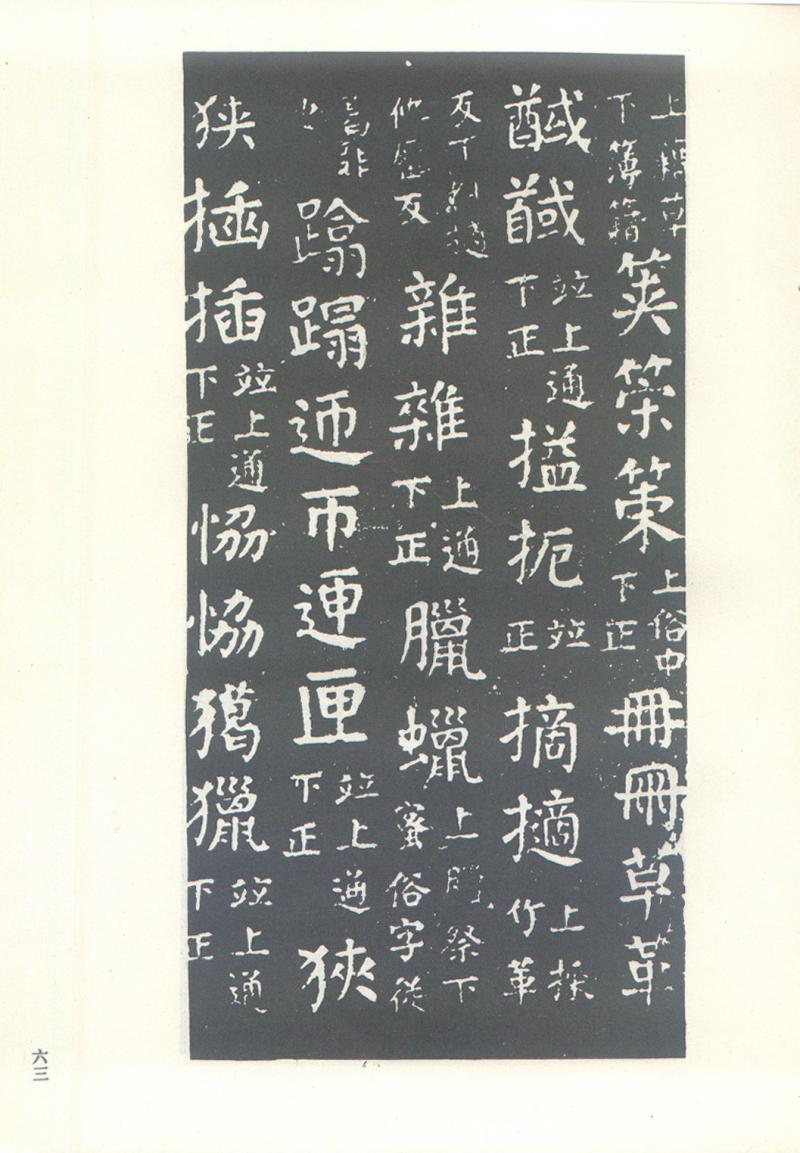 上草下簿籍筴䇿策上俗中下正冊𠕋草革
馘竝上通下正搤扼竝正摘擿上採竹革
反下剔擿他歷反雜雜上通下正臘蠟上臘祭下蜜俗字從
葛非也蹹蹋迊帀匣竝上通下正狹
狭揷插竝上通下正恊協獦獵竝上通下正
六三